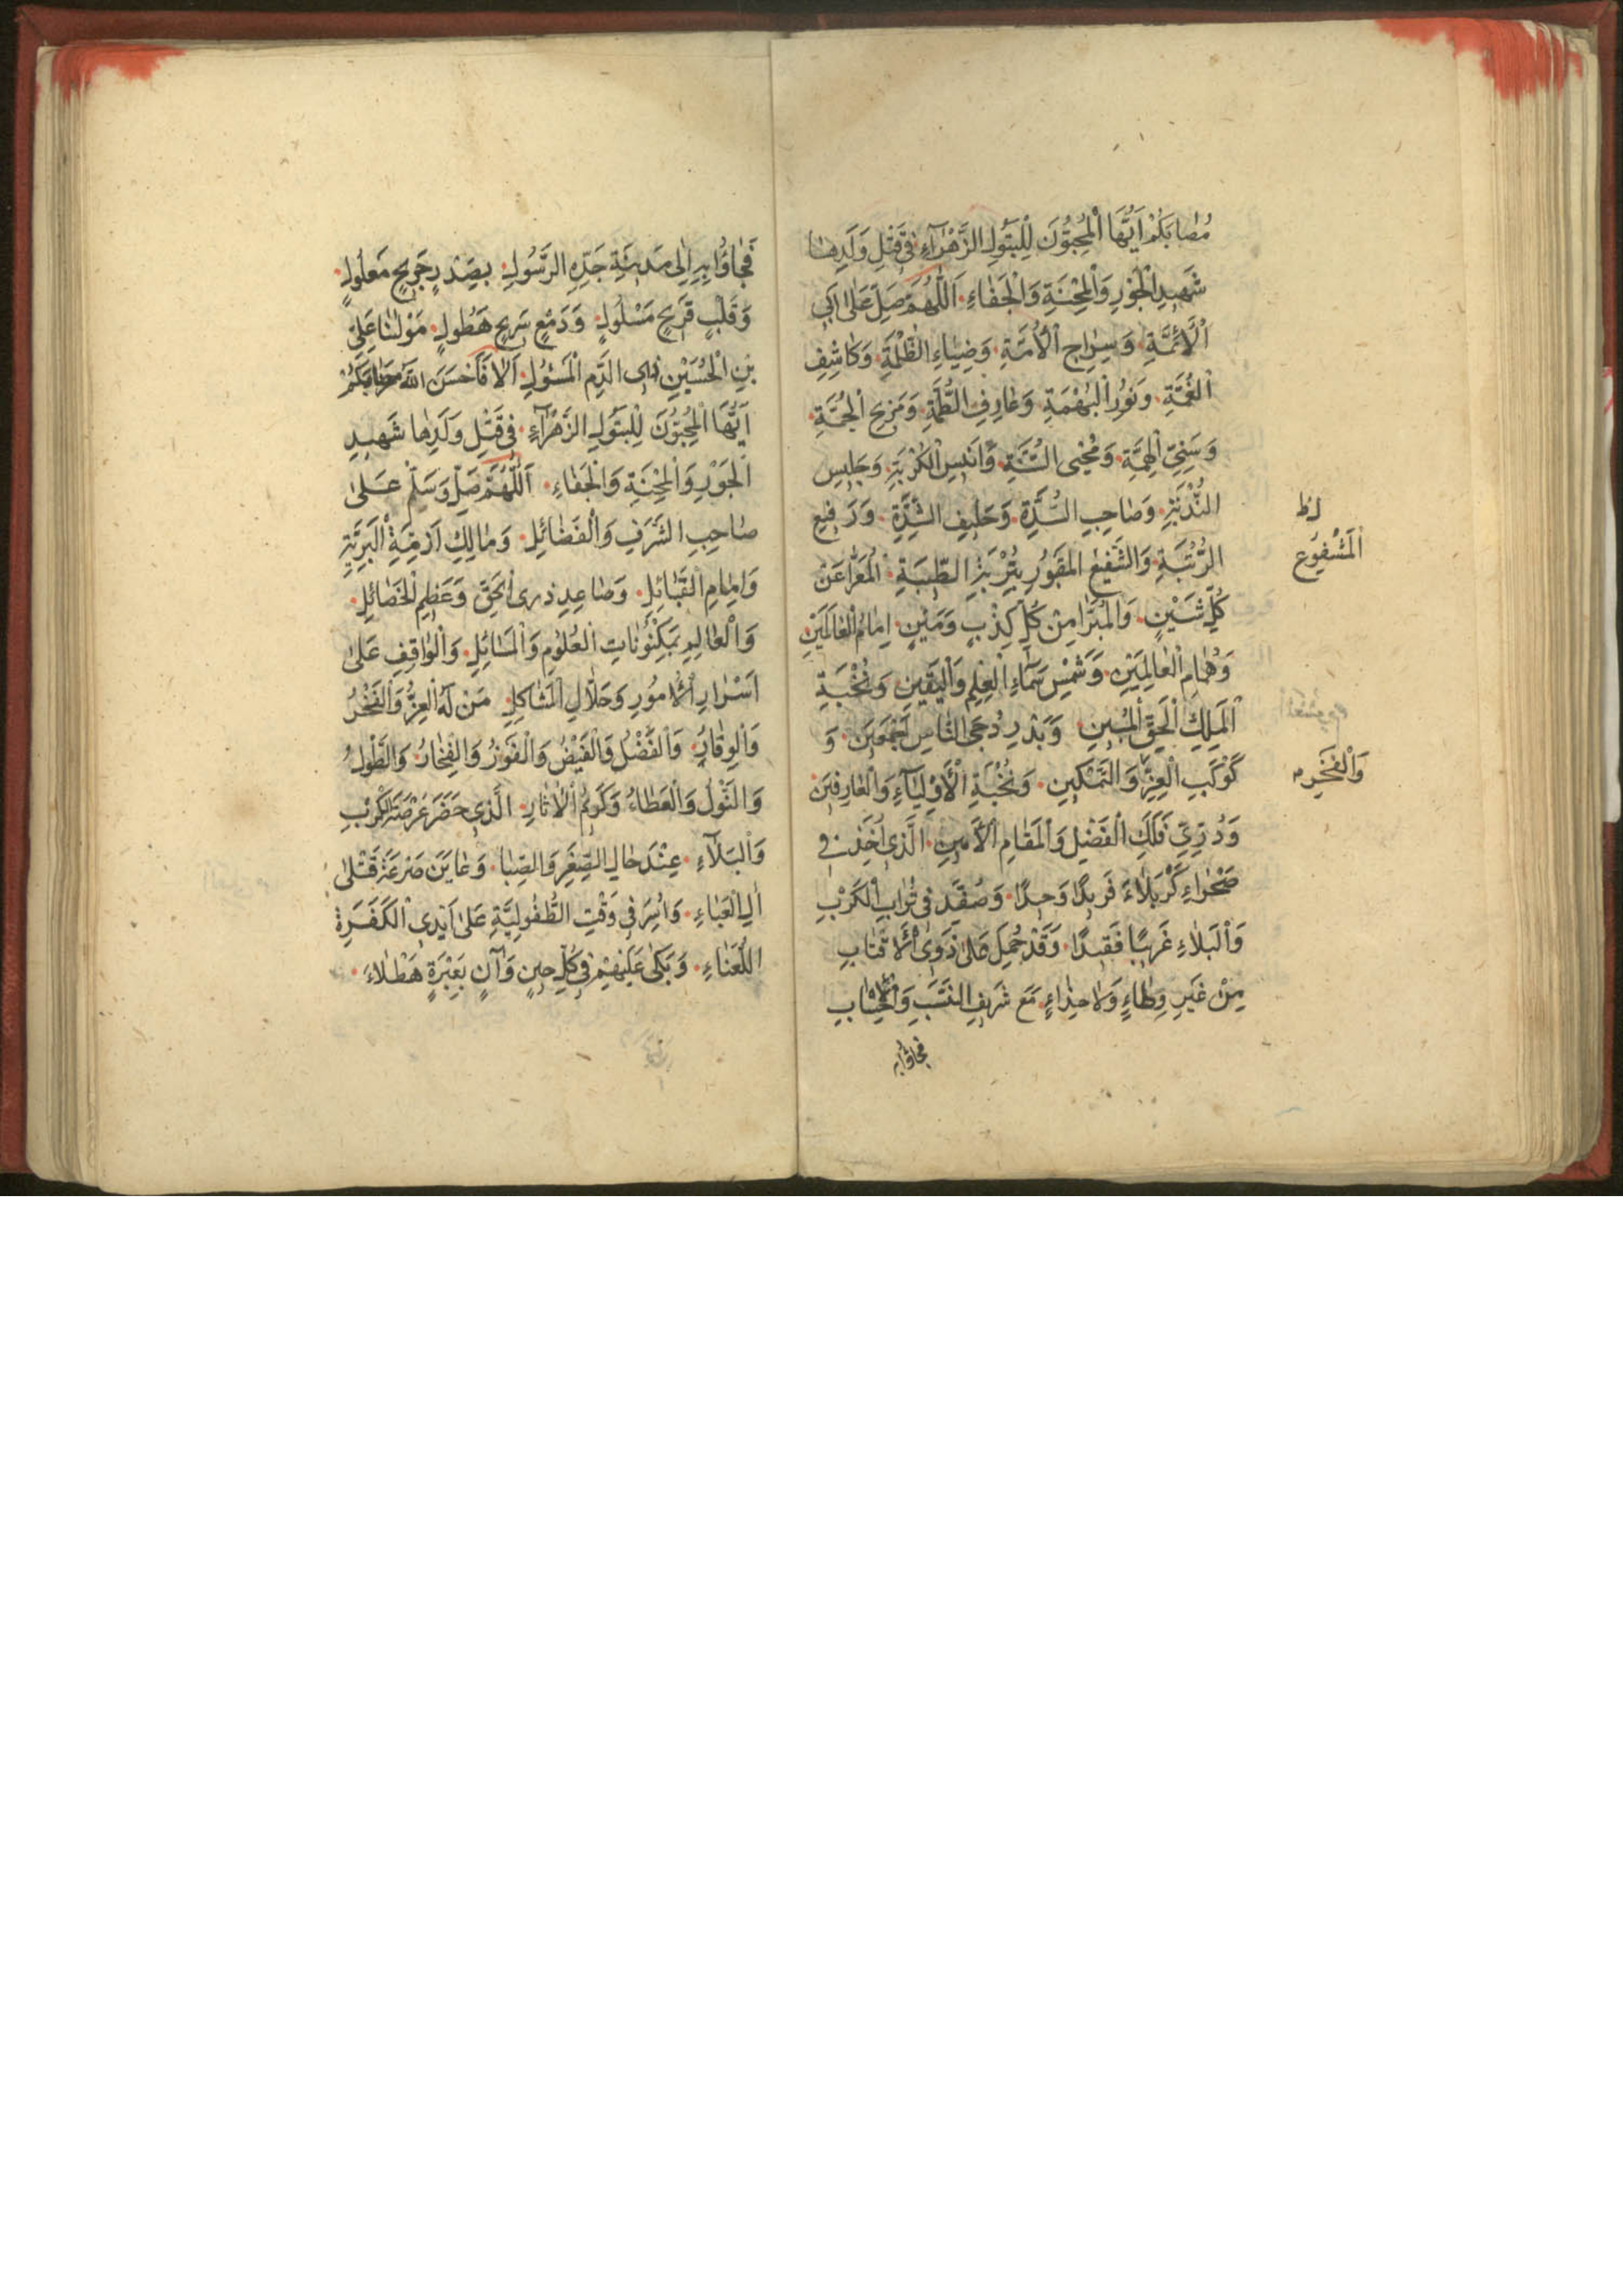 مُصٰابَكُمْ اَيُّهَا الْمُحِبُّونَ لِلْبَتُولِ الزَّهْرٰاۤءِ فِي قَتْلِ وَلَدِهٰا
شَهيدِ الْجَوْرِ وَالْمِحْنَةِ وَالْجَفٰاءِ اَللّٰهُمَّ صَلِّ عَلىٰ اَبِي
الْأَئِمَّةِ وَسِرٰاجِ الْأُمَّةِ وَضِيٰاءِ الظُّلْمَةِ وَكٰاشِفِ
الْغُمَّةِ وَنُورِ الْبُهْمَةِ وَعٰارِفِ الطُّمَّةِ وَمَزيحِ الْحُمَّةِ
وَسَنِيِّ الْهِمَّةِ وَمُحْيِي السُّنَّةِ وَاَنيسِ الْكُرْبَةِ وَجَليسِ
النُّدْبَةِ وَصٰاحِبِ السُّدَّةِ وَحَليفِ الشِّدَّةِ وَرَفيعِ
الرُّتْبَةِ وَالشَّفيعِ الْمَقْبُورِ بِتُرْبَةِ الطَّيْبَةِ الْمُعَرّٰا عَنْ
كُلِّ شَيْنٍ وَالْمُبَرّٰا مِنْ كُلِّ كِذْبٍ وَمَيْنٍ اِمٰامِ الْعٰالَمَيْنِ
وَهُمٰامِ الْعٰالِمينَ وَشَمْسِ سَمٰاءِ الْعِلْمِ وَالْيَقينِ وَنُخْبَةِ
الْمَلِكِ الْحَقِّ الْمُبينِ وَبَدْرِ دُجَى النّٰاسِ اَجْمَعينَ وَ
كَوْكَبِ الْعِزِّ وَالتَّمْكينِ وَنُخْبَةِ الْأَوْلِيٰاۤءِ وَالْعٰارِفينَ
وَدُرِّيِّ فَلَكِ الْفَضْلِ وَالْمَقٰامِ الْأَمينِ الَّذي اُخِذَ في
صَحْرٰاءِ كَرْبَلٰاءَ فَريدًا وَحيدًا وَصُفِّدَ في تُرٰابِ الْكَرْبِ
وَالْبَلٰاءِ غَريبًا فَقيدًا وَقَدْ حُمِلَ عَلىٰ ذَوِي الْأَقْتٰابِ
مِنْ غَيْرِ وِطٰاءٍ وَلٰا حِذٰاءٍ مَعَ شَريفِ النَّسَبِ وَالْأَحْسٰابِ
فجاؤا به
لط
الْمَشْفُوعِ
وَالْفَخْرِ م
فَجٰاؤُا بِهِ اِلىٰ مَدينَةِ جَدِّهِ الرَّسُولِ بِصَدْرٍ جَريحٍ مَعْلُولٍ
وَقَلْبٍ قَريحٍ مَسْلُولٍ وَدَمْعٍ سَريحٍ هَطُولٍ مَوْلٰنٰا عَلِيِّ
بْنِ الْحُسَيْنِ ذِي الدَّمِ الْمَسْئُولِ اَلٰا فَاَحْسَنَ اللهُ
اَيُّهَا الْمُحِبُّونَ لِلْبَتُولِ الزَّهْرٰاۤءِ في قَتْلِ وَلَدِهٰا شَهيدِ
الْجَوْرِ وَالْمِحْنَةِ وَالْجَفٰاءِ اَللّٰهُمَّ صَلِّ وَسَلِّمْ عَلىٰ
صٰاحِبِ الشَّرَفِ وَالْفَضٰائِلِ وَمٰالِكِ اَزِمَّةِ الْبَرِيَّةِ
وَاِمٰامِ الْقَبٰائِلِ وَصٰاعِدِ ذُرَى الْحَقِّ وَعَظيمِ الْخَصٰائِلِ
وَالْعٰالِمِ بِمَكْنُونٰاتِ الْعُلُومِ وَالْمَسٰائِلِ وَالْوٰاقِفِ عَلىٰ
اَسْرٰارِ الْأُمُورِ وَحَلّٰالِ الْمَشٰاكِلِ مَنْ لَهُ الْعِزُّ وَالْفَخْرُ
وَالْوِقٰارُ وَالْفَضْلُ وَالْفَيْضُ وَالْفَوْزُ وَالْفِخٰارُ وَالطَّوْلُ
وَالنَّوْلُ وَالْعَطٰاءُ وَكَرَمُ الْاٰثٰارِ الَّذي حَضَرَ عَرْصَةَ الْكَرْبِ
وَالْبَلٰاۤءِ عِنْدَ حٰالِ الصِّغَرِ وَالصِّبٰا وَعٰايَنَ صَرْعَةَ قَتْلىٰ
اٰلِ الْعَبٰاءِ وَاُسِرَ في وَقْتِ الطُّفُولِيَّةِ عَلىٰ اَيْدِي الْكَفَرَةِ
اللُّعَنٰاءِ وَبَكىٰ عَلَيْهِمْ في كُلِّ حينٍ وَاٰنٍ بِعَبْرَةٍ هَطْلٰاءَ